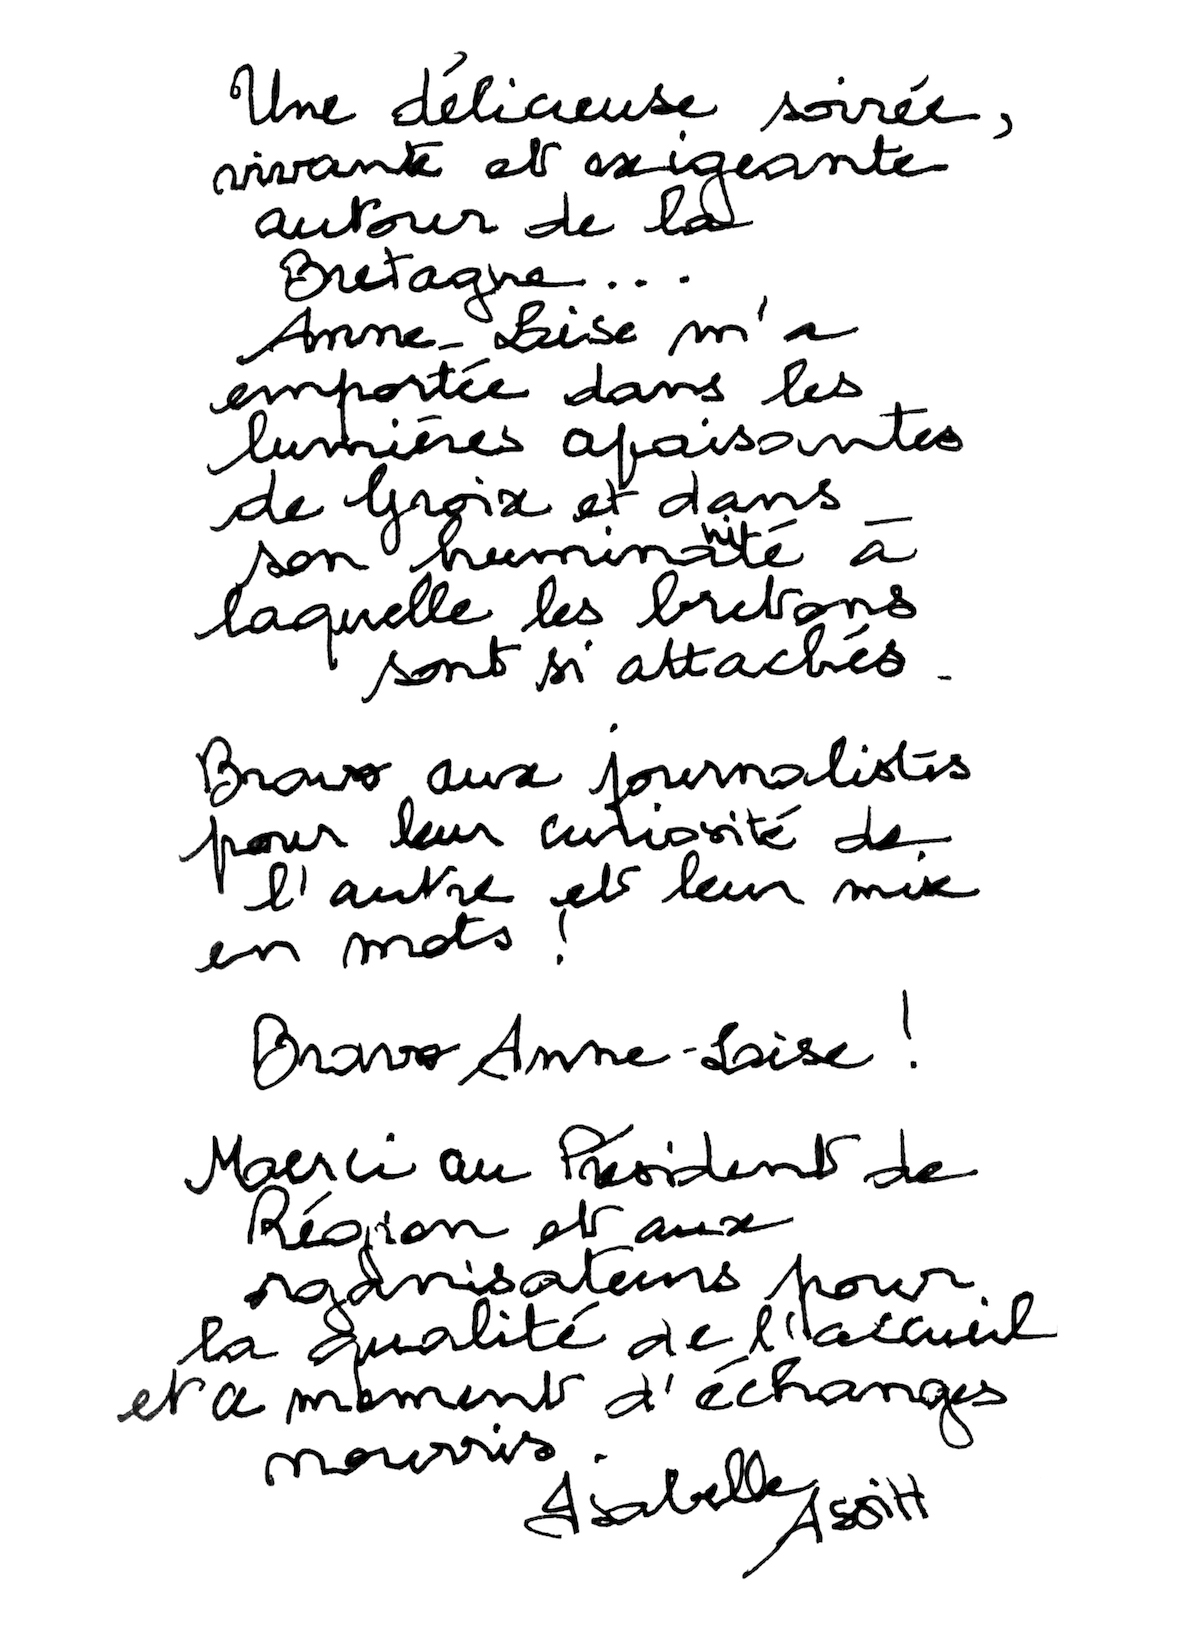 Une délicieuse soirée,
vivante et exigeante
autour de la
Bretagne...
Anne-Loise m'a
emportée dans les
lumières apaisantes
de Groix et dans
son huminanité à
laquelle les bretons
sont si attachés.
Bravo aux journalistes
pour leur curiosité de
l'autre et leur mise
en mots !
Bravo Anne-Loise !
Merci au Président de
Région et aux
organisateurs pour
la qualité de l'accueil
et ce moment d'échanges
nourris.
Isabelle